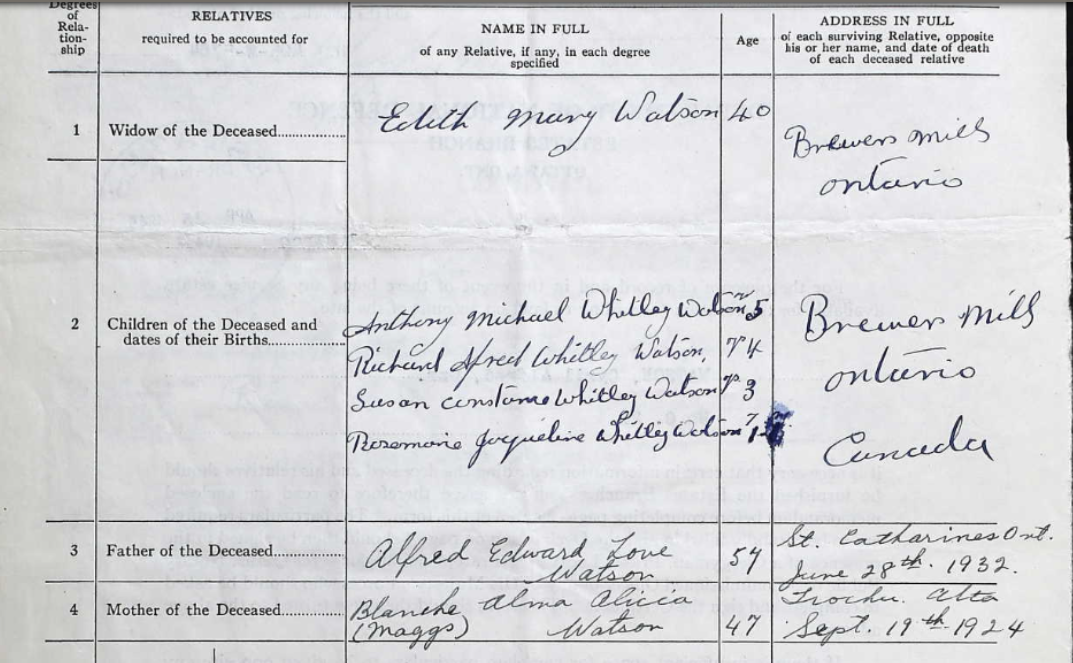 Degrees of Rela- tion- ship
RELATIVES
required to be accounted for
NAME IN FULL
of any Relative, if any, in each degree
specified
Age
ADDRESS IN FULL
of each surviving Relative, opposite
his or her name, and date of death
of each deceased relative
1 Widow of the Deceased.......... Edith Mary Watson 40
Brewers Mills
Ontario
2 Children of the Deceased and
dates of their Births..........
Anthony Michael Whitley Watson 5
Richard Alfred Whitley Watson, 4
Susan Constance Whitley Watson 3
Rosemarie Jacqueline Whitley Watson
Brewers Mills
Ontario
Canada
3 Father of the Deceased.......... Alfred Edward Love
Watson 57
St. Catharines Ont.
June 28th. 1932.
4 Mother of the Deceased.......... Blanche Alma Alicia
(Maggs) Watson 47
Trochu. Alta
Sept. 19th 1924